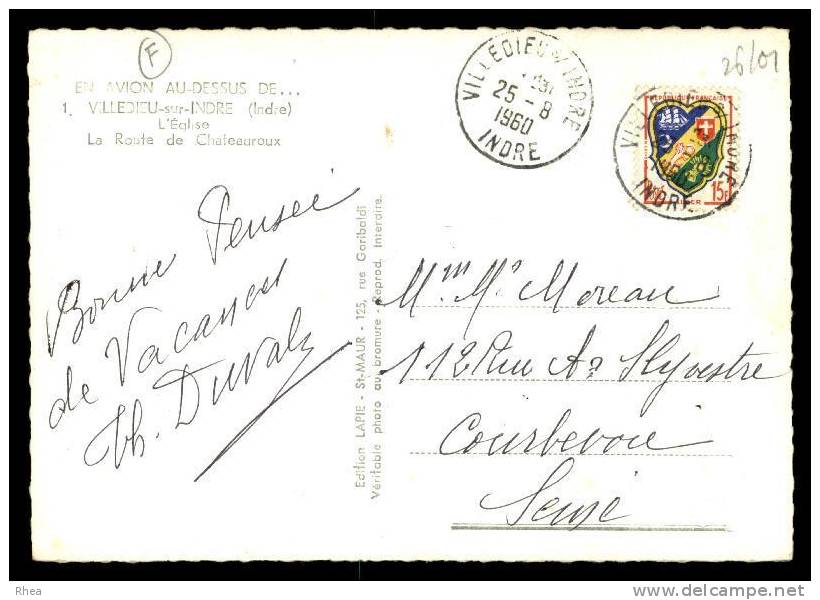 F
26/01
EN AVION AU-DESSUS DE...
1. VILLEDIEU-sur-INDRE (Indre)
L'Église
La Route de Chateauroux
VILLEDIEU S/ INDRE
25 - 8
1960
INDRE
REPUBLIQUE FRANÇAISE
15F
INDRE
Bonne Pensée
de Vacances
Th. Duval
Edition LAPIE - St-MAUR - 125, rue Garibaldi
Véritable photo au bromure - Reprod. Interdire.
Mme Mr Moreau
112 Rue Ad Sylvestre
Courbevoie
Seine
Rhea
delcampe.net